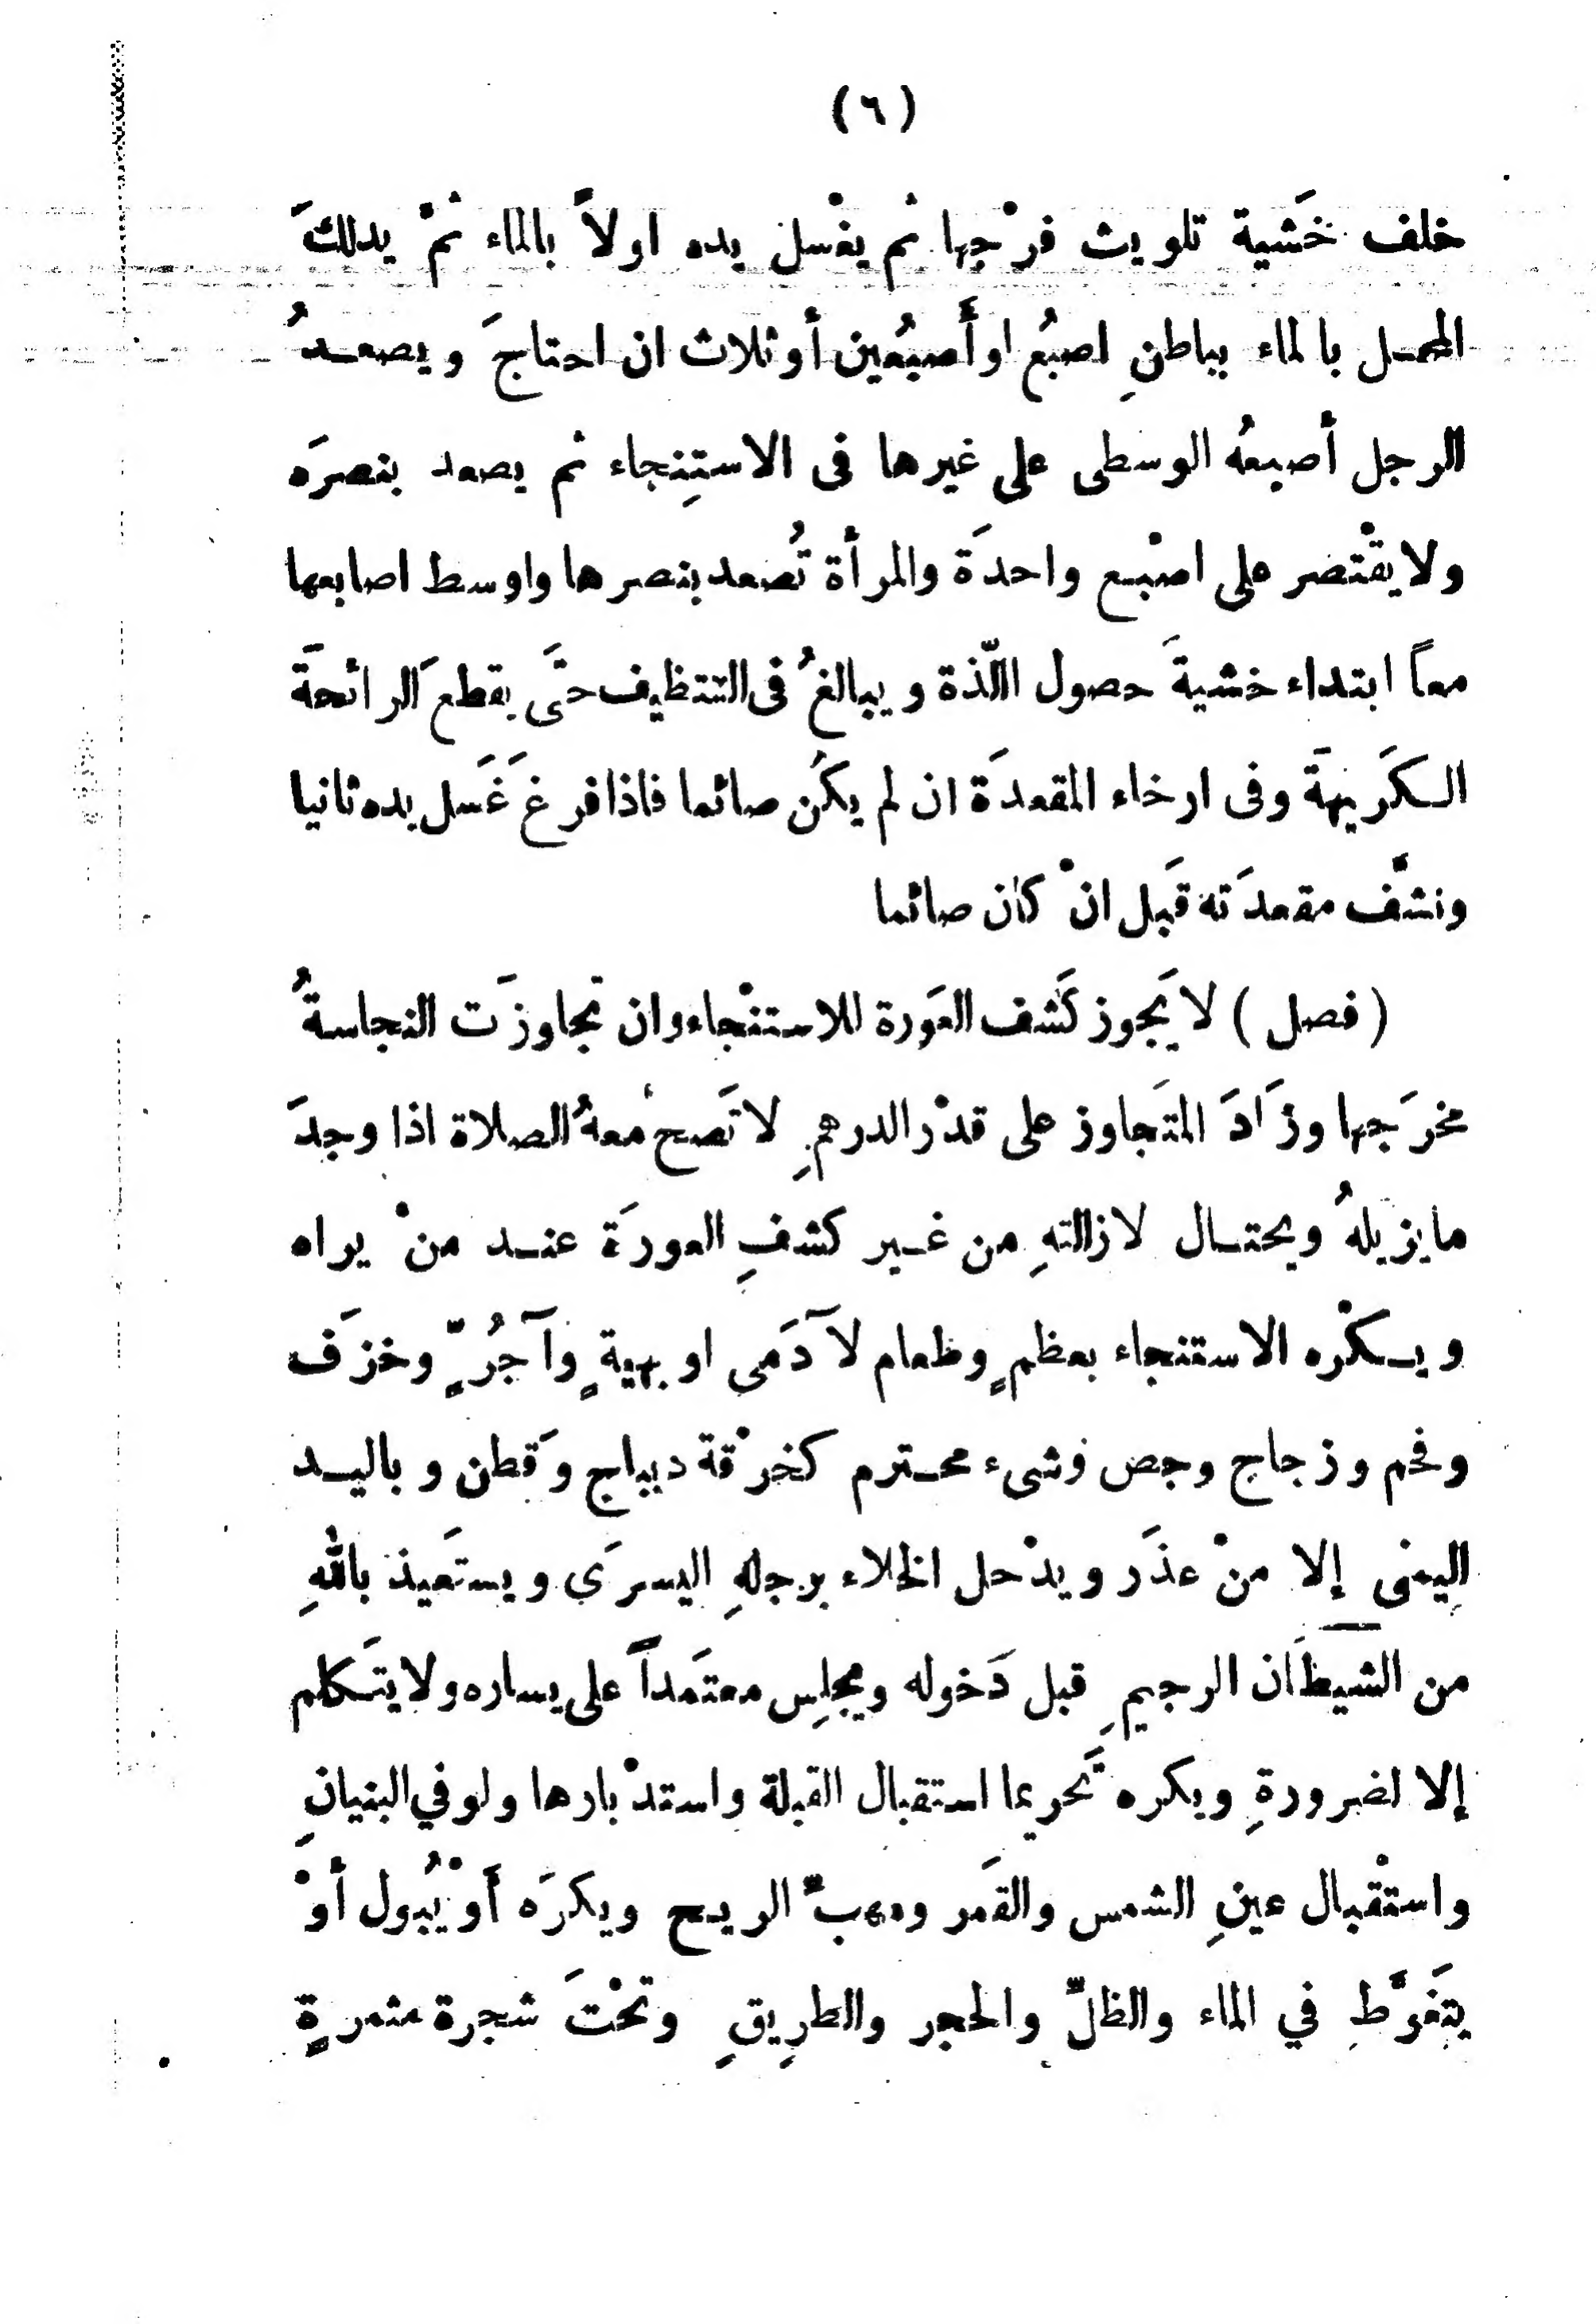 (٦)
خلف خَشية تلويث فرْجها ثم يغْسل يده اولاً بالماء ثمْ يدلكَ
المحـل بالماء بباطنِ اصبُع او أَصبُعين أو ثلاث ان احتاجَ ويصعـدُ
الرجل أصبعهُ الوسطى على غيرها فى الاستِنجاء ثم يصعد بنصرَه
ولا يقْتصر على اصْبـع واحدَة والمرأة تُصعد بنصرها واوسط اصابعها
معاً ابتداء خشيةَ حصول اللّذة ويبالغُ فى التنظيف حتَّى يقطعَ الرائحةَ
الـكَريهةَ وفى ارخاء المقعدَة ان لم يكُن صائما فاذا فرغَ غَسل يده ثانيا
ونشَّف مقعدَته قَبل انْ كان صائما
(فصل) لا يَجوز كَشف العَورة للاستنْجاء وان تجاوزَت النجاسةُ
مخرَجها وزَادَ المتَجاوز على قدْر الدرهمِ لا تَصح معهُ الصلاة اذا وجدَ
ما يزيلهُ ويحتـال لازالتهِ من غـير كشفِ العورَة عنـد منْ يراه
ويـكْره الاستنجاء بعظمٍ وطعام لآدَمى او بهيمةٍ وآجُرٍّ وخزَف
وفحم وزجاج وجص وشىء محـترم كخرْقة ديباج وَقطن وباليـد
اليمنى إلا منْ عذَر ويدْخل الخلاء برجلهِ اليسرَى ويستَعيذ باللّٰهِ
من الشيطَان الرجيمِ قبل دَخوله ويجلِس معتَمداً على يساره ولا يتـكلم
إلا لضرورةِ ويكره تَحريما استقبال القبلة واستدْبارها ولو في البنيانِ
واستْقبال عينِ الشمس والقَمر ومهبِّ الريح ويكرَه أَوْ يُبْول أوْ
يتَغَوَّطِ في الماء والظلِّ والحجر والطرِيقِ وتحْتَ شجرة مثمرةٍ